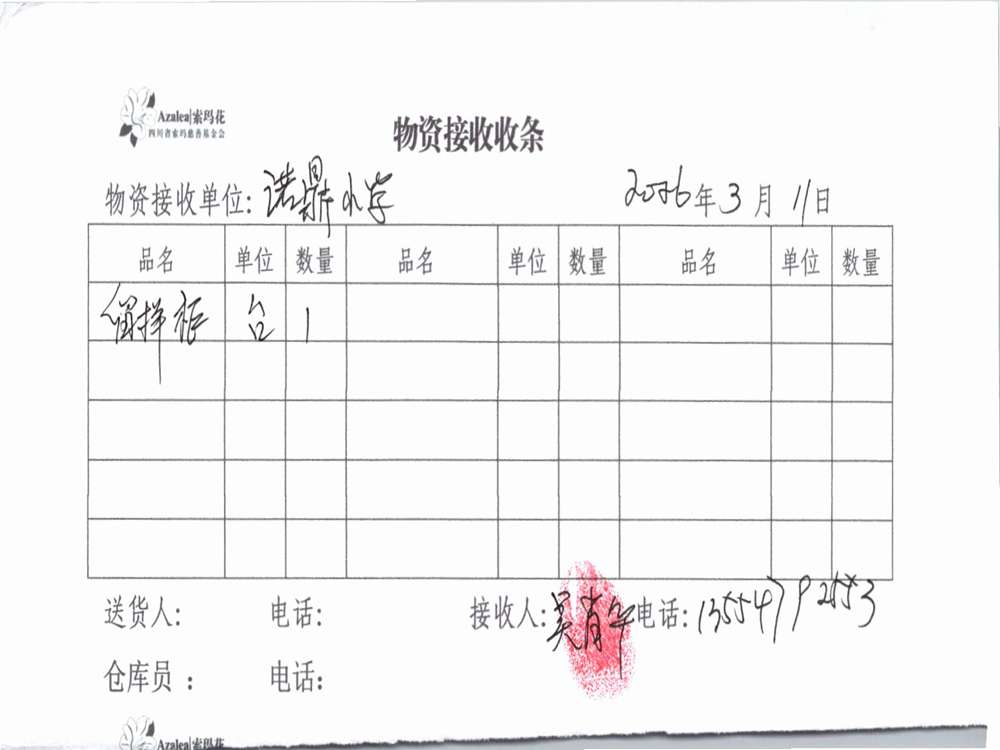 Azalea|索玛花
四川省索玛慈善基金会
物资接收收条
物资接收单位: 诺鼎小学 2026年3月11日
品名 单位 数量 品名 单位 数量 品名 单位 数量
留样柜 台 1
送货人: 电话: 接收人: 吴肖华 电话: 13554792553
仓库员 : 电话:
Azalea|索玛花